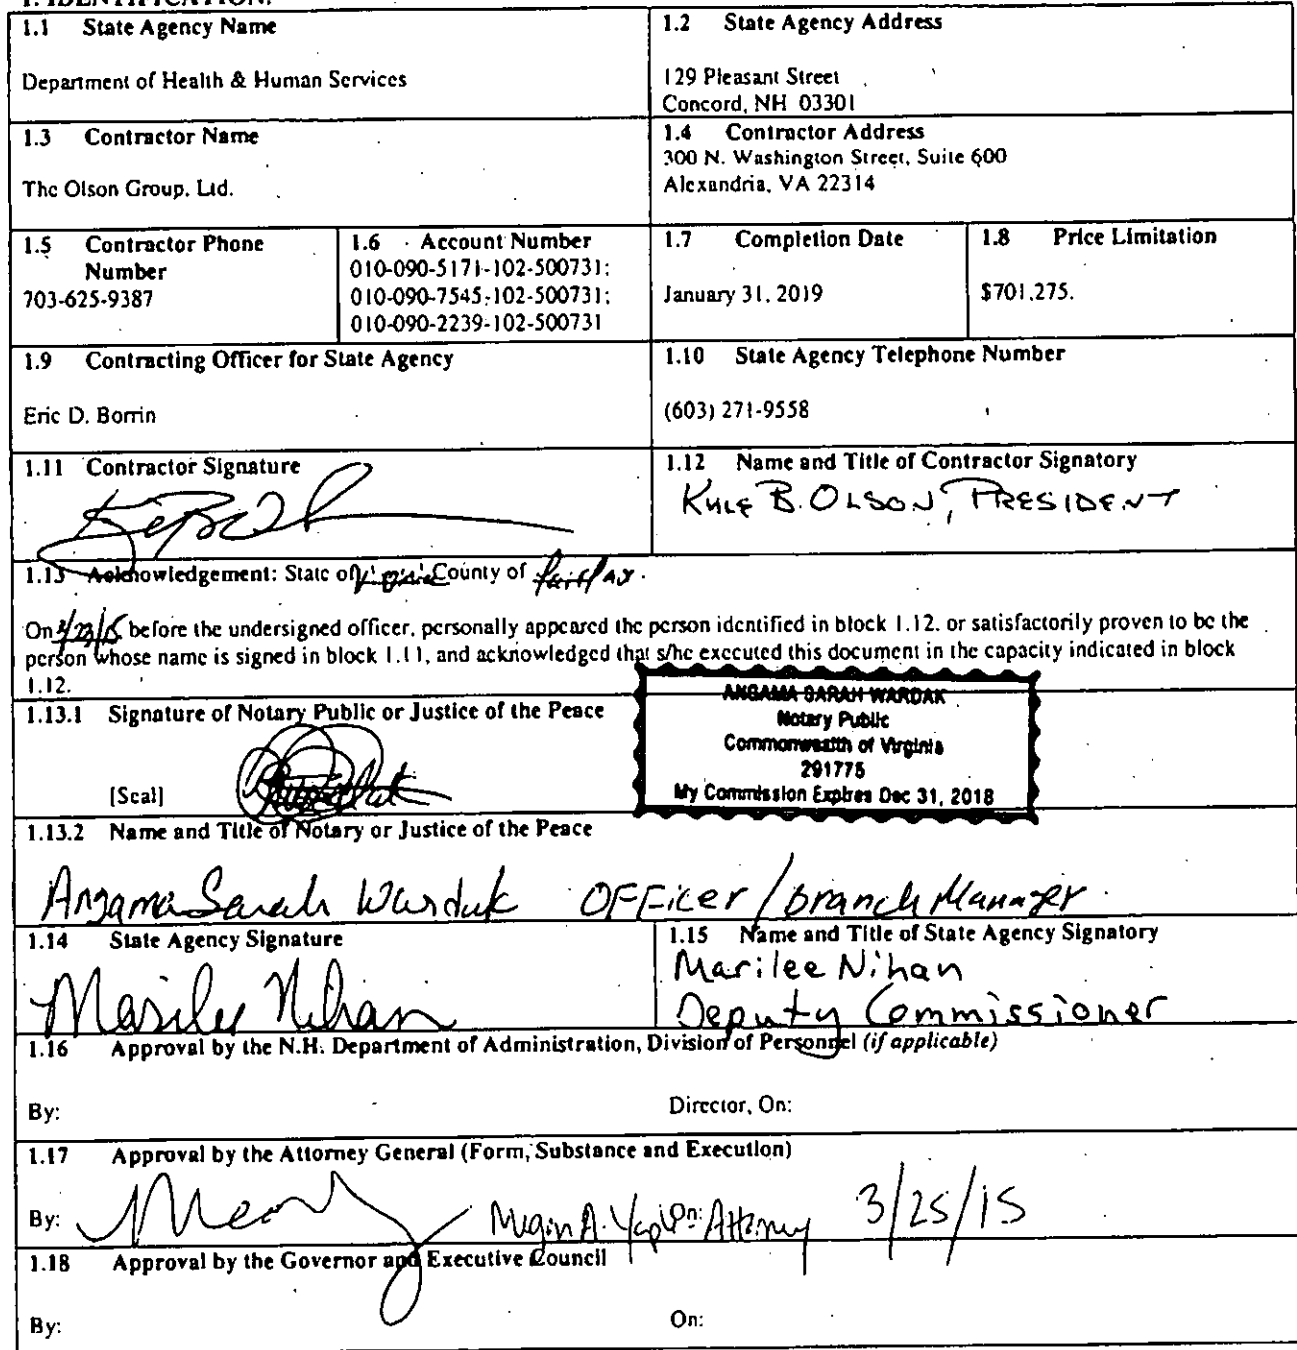 1. IDENTIFICATION.
1.1 State Agency Name
Department of Health & Human Services
1.2 State Agency Address
129 Pleasant Street
Concord, NH 03301
1.3 Contractor Name
The Olson Group, Ltd.
1.4 Contractor Address
300 N. Washington Street, Suite 600
Alexandria, VA 22314
1.5 Contractor Phone
Number
703-625-9387
1.6 Account Number
010-090-5171-102-500731;
010-090-7545-102-500731;
010-090-2239-102-500731
1.7 Completion Date
January 31, 2019
1.8 Price Limitation
$701,275.
1.9 Contracting Officer for State Agency
Eric D. Borrin
1.10 State Agency Telephone Number
(603) 271-9558
1.11 Contractor Signature
1.12 Name and Title of Contractor Signatory
KYLE B. OLSON, PRESIDENT
1.13 Acknowledgement: State of Virginia County of Fairfax.
On before the undersigned officer, personally appeared the person identified in block 1.12, or satisfactorily proven to be the
person whose name is signed in block 1.11, and acknowledged that s/he executed this document in the capacity indicated in block
1.12.
ANGAMA SARAH WARDAK
Notary Public
Commonwealth of Virginia
291775
My Commission Expires Dec 31, 2018
1.13.1 Signature of Notary Public or Justice of the Peace
[Seal]
1.13.2 Name and Title of Notary or Justice of the Peace
Angama Sarah Wardak Officer / branch Manager
1.14 State Agency Signature
Marilee Nihan
1.15 Name and Title of State Agency Signatory
Marilee Nihan
Deputy Commissioner
1.16 Approval by the N.H. Department of Administration, Division of Personnel (if applicable)
By:
Director, On:
1.17 Approval by the Attorney General (Form, Substance and Execution)
By: Megan A. On: Attorney 3/25/15
1.18 Approval by the Governor and Executive Council
By:
On: